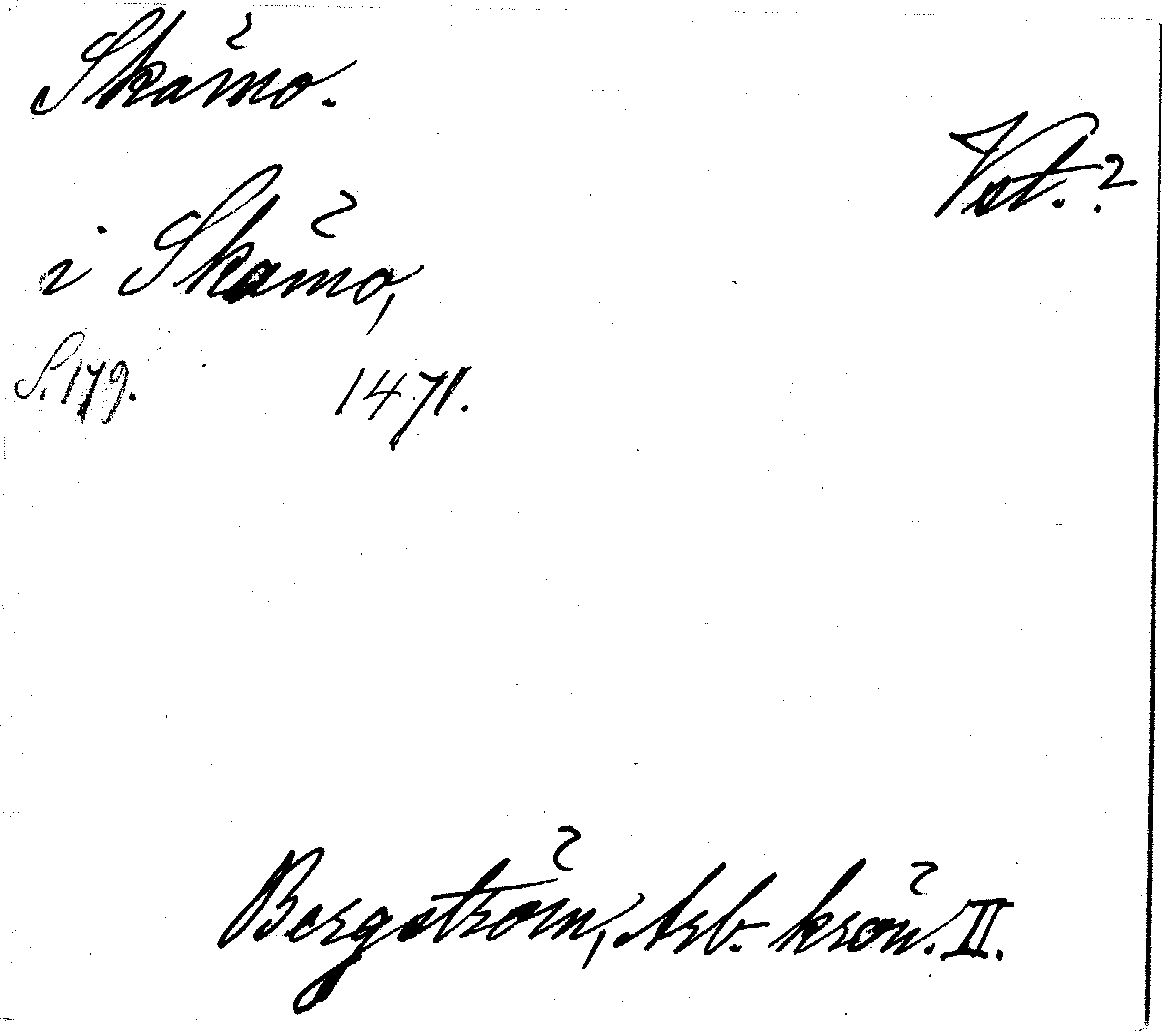 Skämo.
Vst.?
i Skämo,
S. 179. 1471.
Bergström, Arb. krön. II.